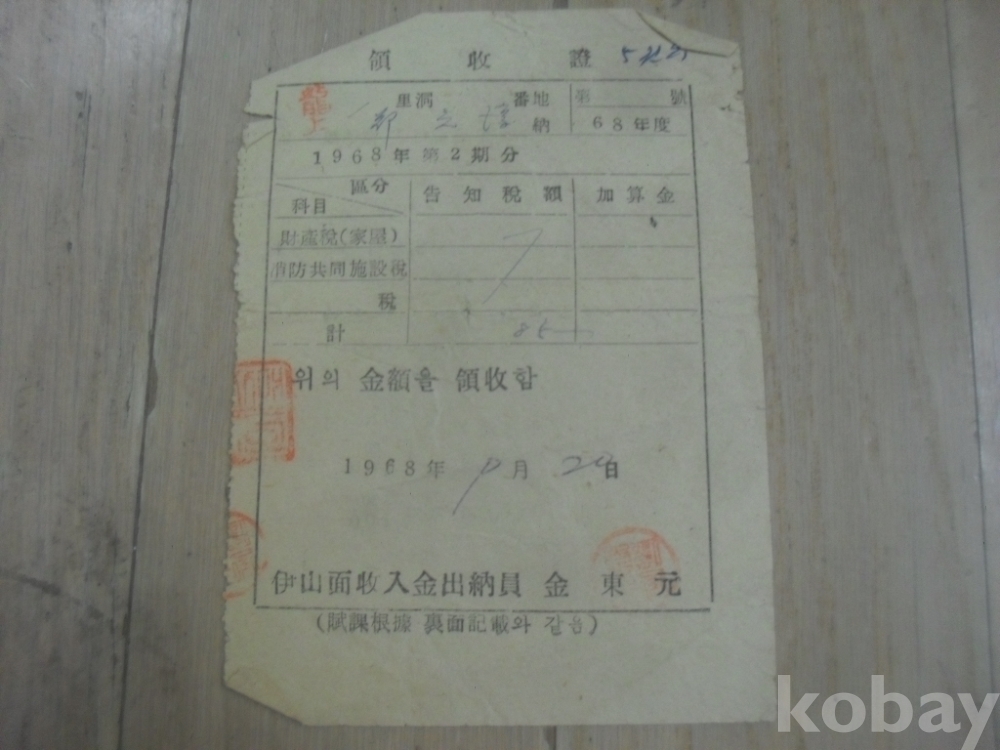 領收證
里洞 番地 第 號
納 68年度
1968年 第2期分
區分 告知稅額 加算金
科目
財產稅(家屋)
消防共同施設稅
稅
計
위의 金額을 領收함
1968年 月 20日
伊山面收入金出納員 金東元
(賦課根據 裏面記載와 같음)
kobay